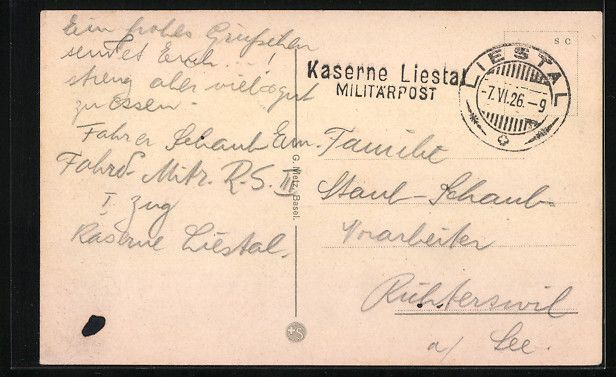 Ein frohes Grüsschen
sendet Euch...!
streng aber viel & gut
zu essen.
Fahrer Schaub Em.
Fahrd. Mitr. R.S. III
I Zug
Kaserne Liestal.
G. Metz, Basel.
S
s c
Kaserne Liestal
MILITÄRPOST
LIESTAL
-7.VI.26.-9
Familie
Staub-Schaub-
Vorarbeiter
Richterswil
a/ See.